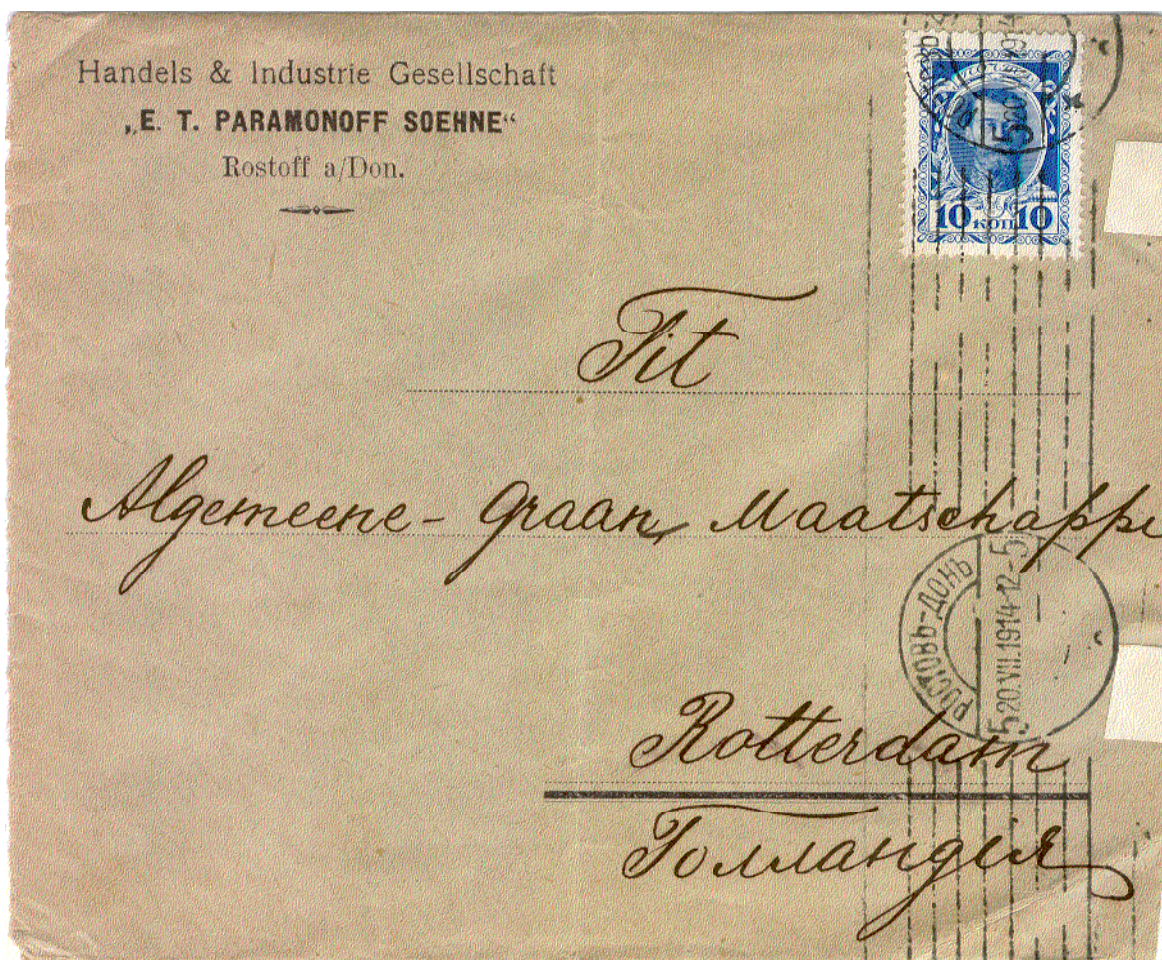 Handels & Industrie Gesellschaft
„E. T. PARAMONOFF SOEHNE“
Rostoff a/Don.
10 КОП 10
Tit
Algemeene - Graan Maatschappi
РОСТОВЪ-ДОНЪ
5 20.VII.1914-12-5
Rotterdam
Голландія